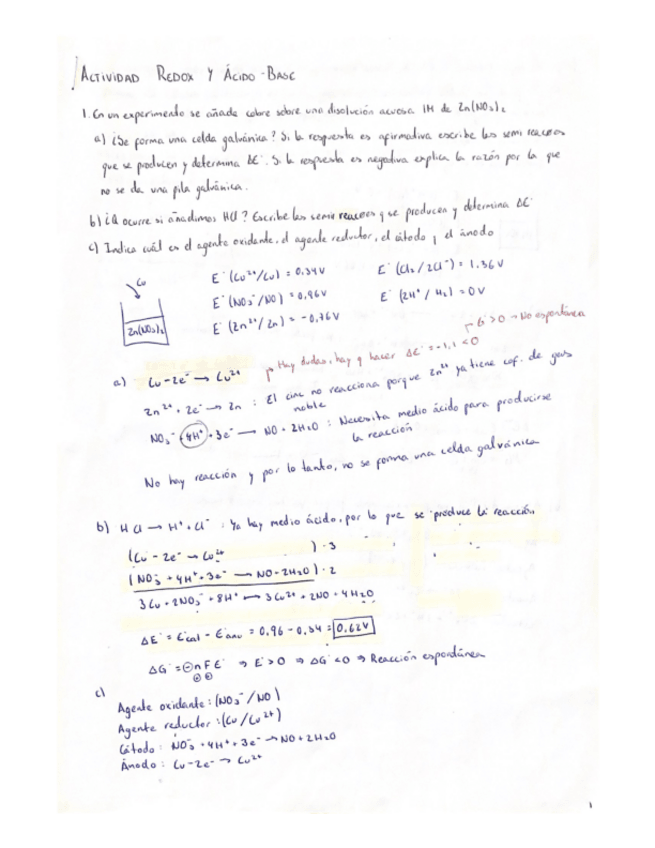 ACTIVIDAD REDOX Y ÁCIDO-BASE
1. En un experimento se añade cobre sobre una disolución acuosa 1M de Zn(NO3)2
a) ¿Se forma una celda galvánica? Si la respuesta es afirmativa escribe las semi reacciones
que se producen y determina ΔE°. Si la respuesta es negativa explica la razón por la que
no se da una pila galvánica.
b) ¿Q ocurre si añadimos HCl? Escribe las semi reacciones q se producen y determina ΔE°
c) Indica cuál es el agente oxidante, el agente reductor, el cátodo y el ánodo
Cu
Zn(NO3)2
E°(Cu2+/Cu) = 0.34V
E°(Cl2/2Cl-) = 1.36V
E°(NO3-/NO) = 0,96V
E°(2H+/H2) = 0V
E°(Zn2+/Zn) = -0.76V
G°>0 → No espontánea
Hay dudas, hay q hacer ΔE° = -1,1 <0
a) Cu - 2e- → Cu2+
Zn2+ + 2e- → Zn : El cinc no reacciona porque Zn2+ ya tiene cof. de gas
noble
NO3- + 4H+ + 3e- → NO + 2H2O : Necesita medio ácido para producirse
la reacción
No hay reacción y por lo tanto, no se forma una celda galvánica
b) HCl → H+ + Cl- : Ya hay medio ácido, por lo que se produce la reacción.
(Cu - 2e- → Cu2+ ) · 3
(NO3- + 4H+ + 3e- → NO + 2H2O) · 2
3Cu + 2NO3- + 8H+ → 3Cu2+ + 2NO + 4H2O
ΔE° = E°cat - E°ano = 0.96 - 0.34 = 0.62V
ΔG° = -nFE° ⇒ E°>0 ⇒ ΔG°<0 ⇒ Reacción espontánea
c)
Agente oxidante: (NO3-/NO)
Agente reductor: (Cu/Cu2+)
Cátodo: NO3- + 4H+ + 3e- → NO + 2H2O
Ánodo: Cu - 2e- → Cu2+
1